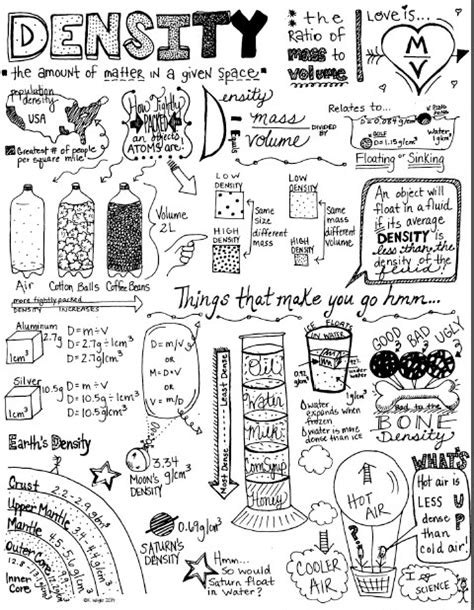 DENSITY
the amount of matter in a given space
the
Ratio of
mass to
volume
Love is...
M
V
population
density
USA
Greatest # of people
per square mile
How Tightly
PACKED
an object's
ATOMS are!
Density
Equals
mass
DIVIDED
volume
Relates to...
D=0.084g/cm³
GOLF
D=1.15g/cm³
Water
1g/cm³
Floating or Sinking
Volume
2L
Air
Cotton Balls
Coffee Beans
more tightly packed
DENSITY INCREASES
LOW
DENSITY
HIGH
DENSITY
Same
size
different
mass
LOW
DENSITY
HIGH
DENSITY
Same
mass
different
volume
An object will
float in a fluid
if its average
DENSITY is
less than the
density of the
fluid!
Things that make you go hmm...
Aluminum
2.7g
1cm³
D=m÷V
D=2.7g÷1cm³
D=2.7g/cm³
Silver
10.5g
1cm³
D=m÷V
D=10.5g÷1cm³
D=10.5g/cm³
D=m/V
OR
M=D×V
OR
V=m/D
Least Dense
Most Dense
Oil
Water
Milk
Corn syrup
Honey
ICE FLOATS
IN WATER
0.92
g/cm³
1g/cm³
water
expands when
frozen
water is more
dense than ice
GOOD
BAD
UGLY
Bad to the
BONE
Density
Earth's Density
Crust 2.2-2.9g/cm³
Upper Mantle 3.4-4.4g/cm³
Mantle 4.5-5.6g/cm³
Outer Core
Inner
Core
3.34
g/cm³
MOON'S
DENSITY
0.69g/cm³
SATURN'S
DENSITY
Hmm...
So would
Saturn float
in Water?
HOT
AIR
COOLER
AIR
WHAT'S
UP
Hot air is
LESS
dense
than
cold air!
I
SCIENCE